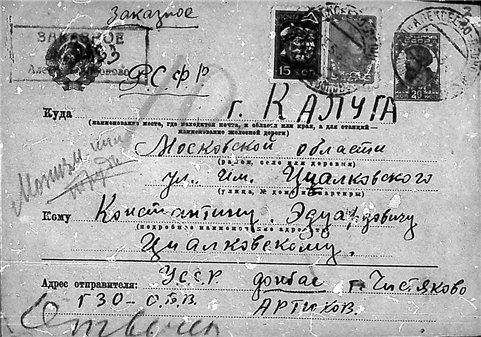 Заказное
ЗАКАЗНОЕ
Р.С.Ф.Р
15 КОП
20
Куда г. КАЛУГА
(наименование места, где находится почта, и области или края, а для станций —
наименование железной дороги)
Московской области
(район, село или деревня)
ул. им. Циалковского
(улица, № дома и квартиры)
Кому Константину. Эдуардовичу
(подробное наименование адресата)
Циалковскому.
Адрес отправителя: УССР. донбас г. Чистяково
ГЗО-О.Б.В. АРТЮХОВ.